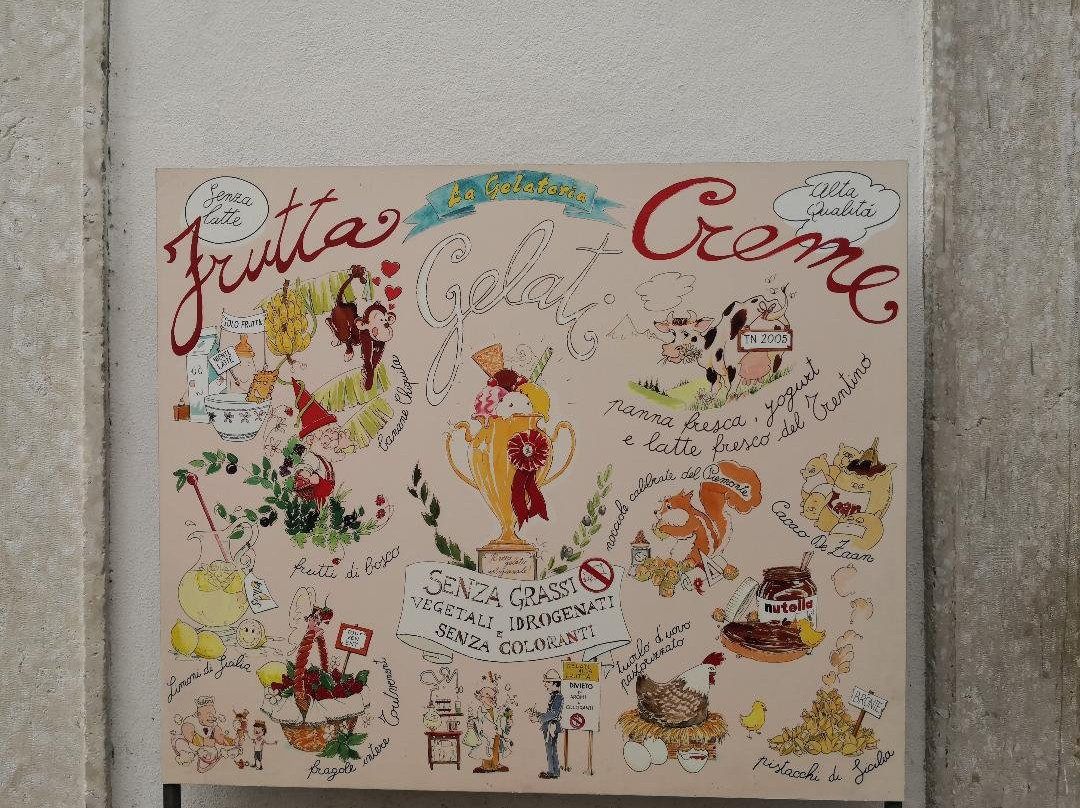 La Gelateria
Senza
latte
Frutta
Gelati
Creme
Alta
Qualitá
SOLO FRUTTA
NIENTE
LATTE
TN 2005
banane Chiquita
panna fresca, yogurt
e latte fresco del Trentino
nocciole calibrate del Piemonte
Cacao De Zaan
Zaan
frutti di bosco
SENZA GRASSI
VEGETALI IDROGENATI
E
SENZA COLORANTI
nutella
Limoni di Sicilia
fragole intere
tuorlo d'uovo
pastorizzato
GELATO
ALLA
FRUTTA
DIVIETO
AROMI
E
COLORANTI
BRONTE
pistacchi di Sicilia